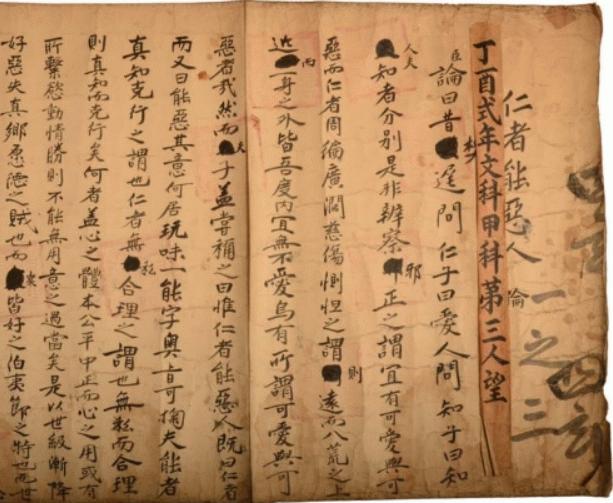 一之三
仁者能惡人 論
丁酉式年文科甲科第三人望
臣論曰昔樊遲問仁子曰愛人問知子曰知
人夫知者分別是非辨察邪正之謂宜有可愛與可
惡而仁者周徧廣濶慈傷惻怛之謂則遠而八荒之上
近而一哥之外皆吾度內宜無不愛烏有所謂可愛與可
惡者哉然而夫子盖嘗稱之曰惟仁者能惡人旣曰仁者
而又曰能惡其意何居玩味一能字奧旨可掬夫能者
真知克行之謂也仁者無私合理之謂也無私而合理
則真知而克行矣何者盖心之體本公平中正而心之用或有
所繫慾動情勝則不能無用意之過當矣是以世級漸降
好惡失真鄉愿德之賊也而衆皆好之伯夷節之特也而世